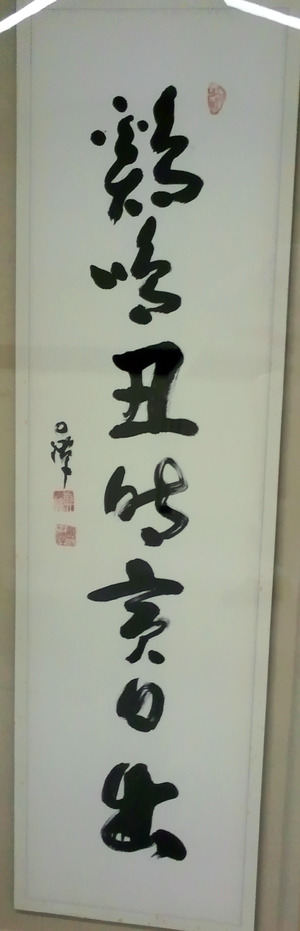 鷄鳴丑時寅日出